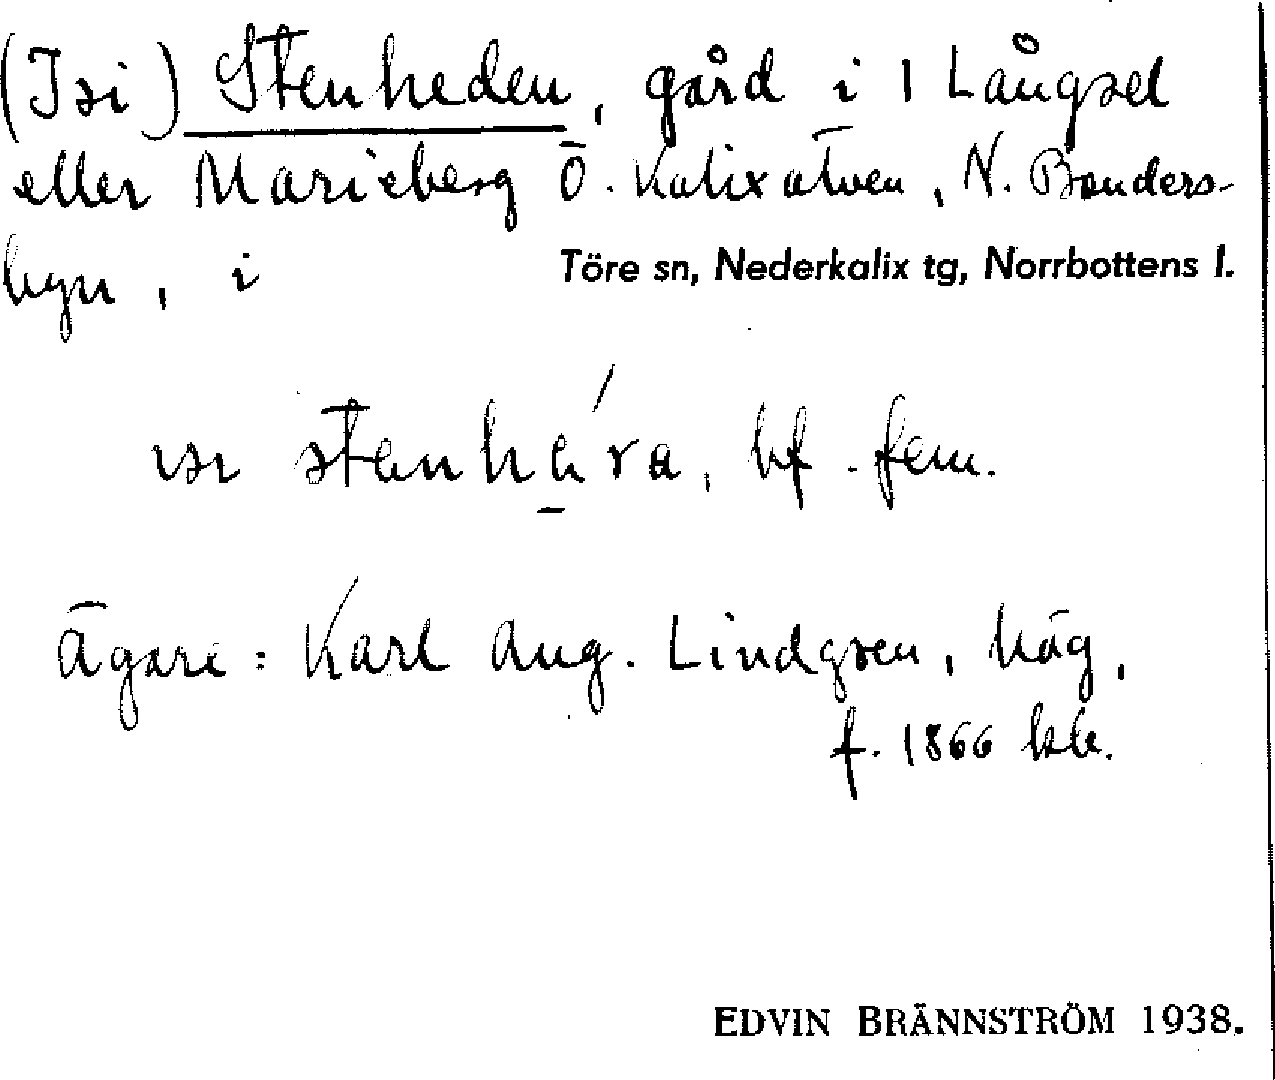 (Isi) Stenheden, gård i 1 Långsel
eller Marieberg Ö. Kalixälven, N. Bonders-
byn, i Töre sn, Nederkalix tg, Norrbottens l.
isi stenhära, bf. fem.
Ägare: Karl Aug. Lindgren, häg,
f. 1866 kb.
EDVIN BRÄNNSTRÖM 1938.